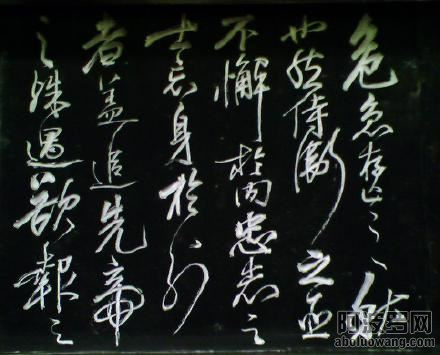 危急存亡之秋
也然侍衛之臣
不懈於内忠志之
士忘身於外
者蓋追先帝
之殊遇欲報之
阿波罗网
aboluowang.com